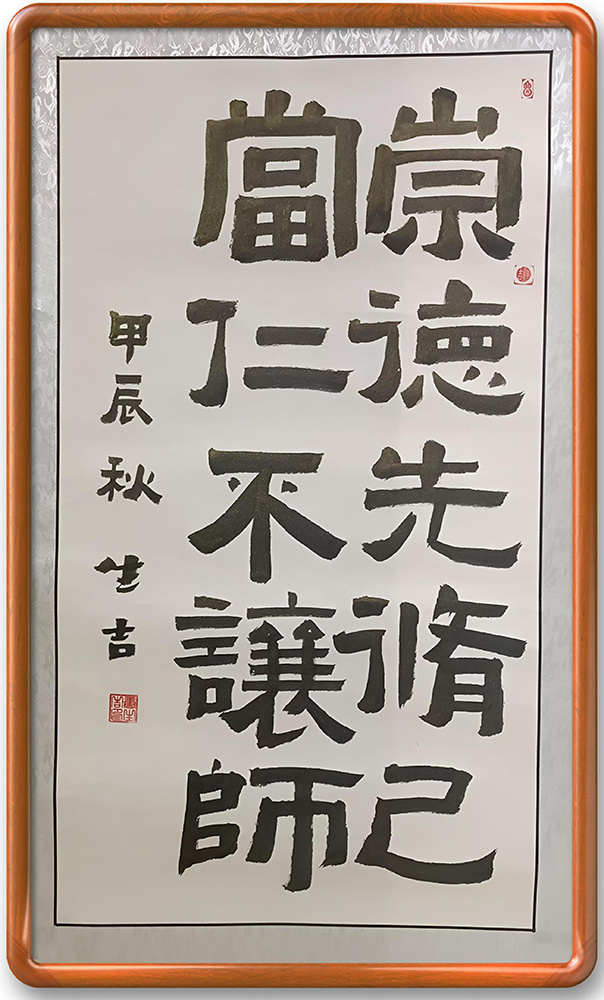 崇德先脩己
當仁不讓師
甲辰秋 生吉